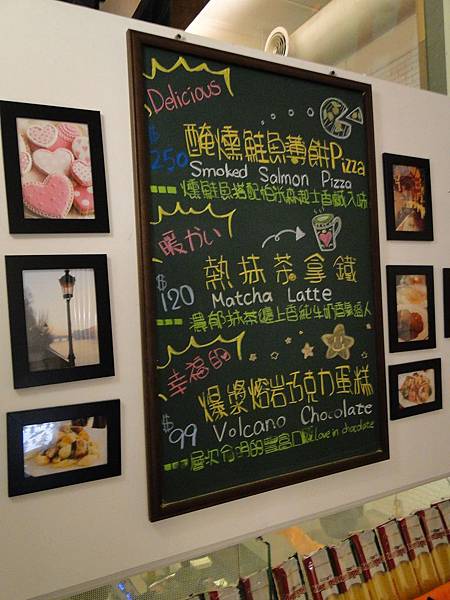 Delicious
$250
醃燻鮭魚薄餅Pizza
Smoked Salmon Pizza
燻鮭魚搭配帕米森起士香鹹入味
暖かい
$120
熱抹茶拿鐵
Matcha Latte
濃郁抹茶遇上香純牛奶香氣迷人
幸福的
$99
爆漿熔岩巧克力蛋糕
Volcano Chocolate
層次分明的豐富口感 love in chocolate